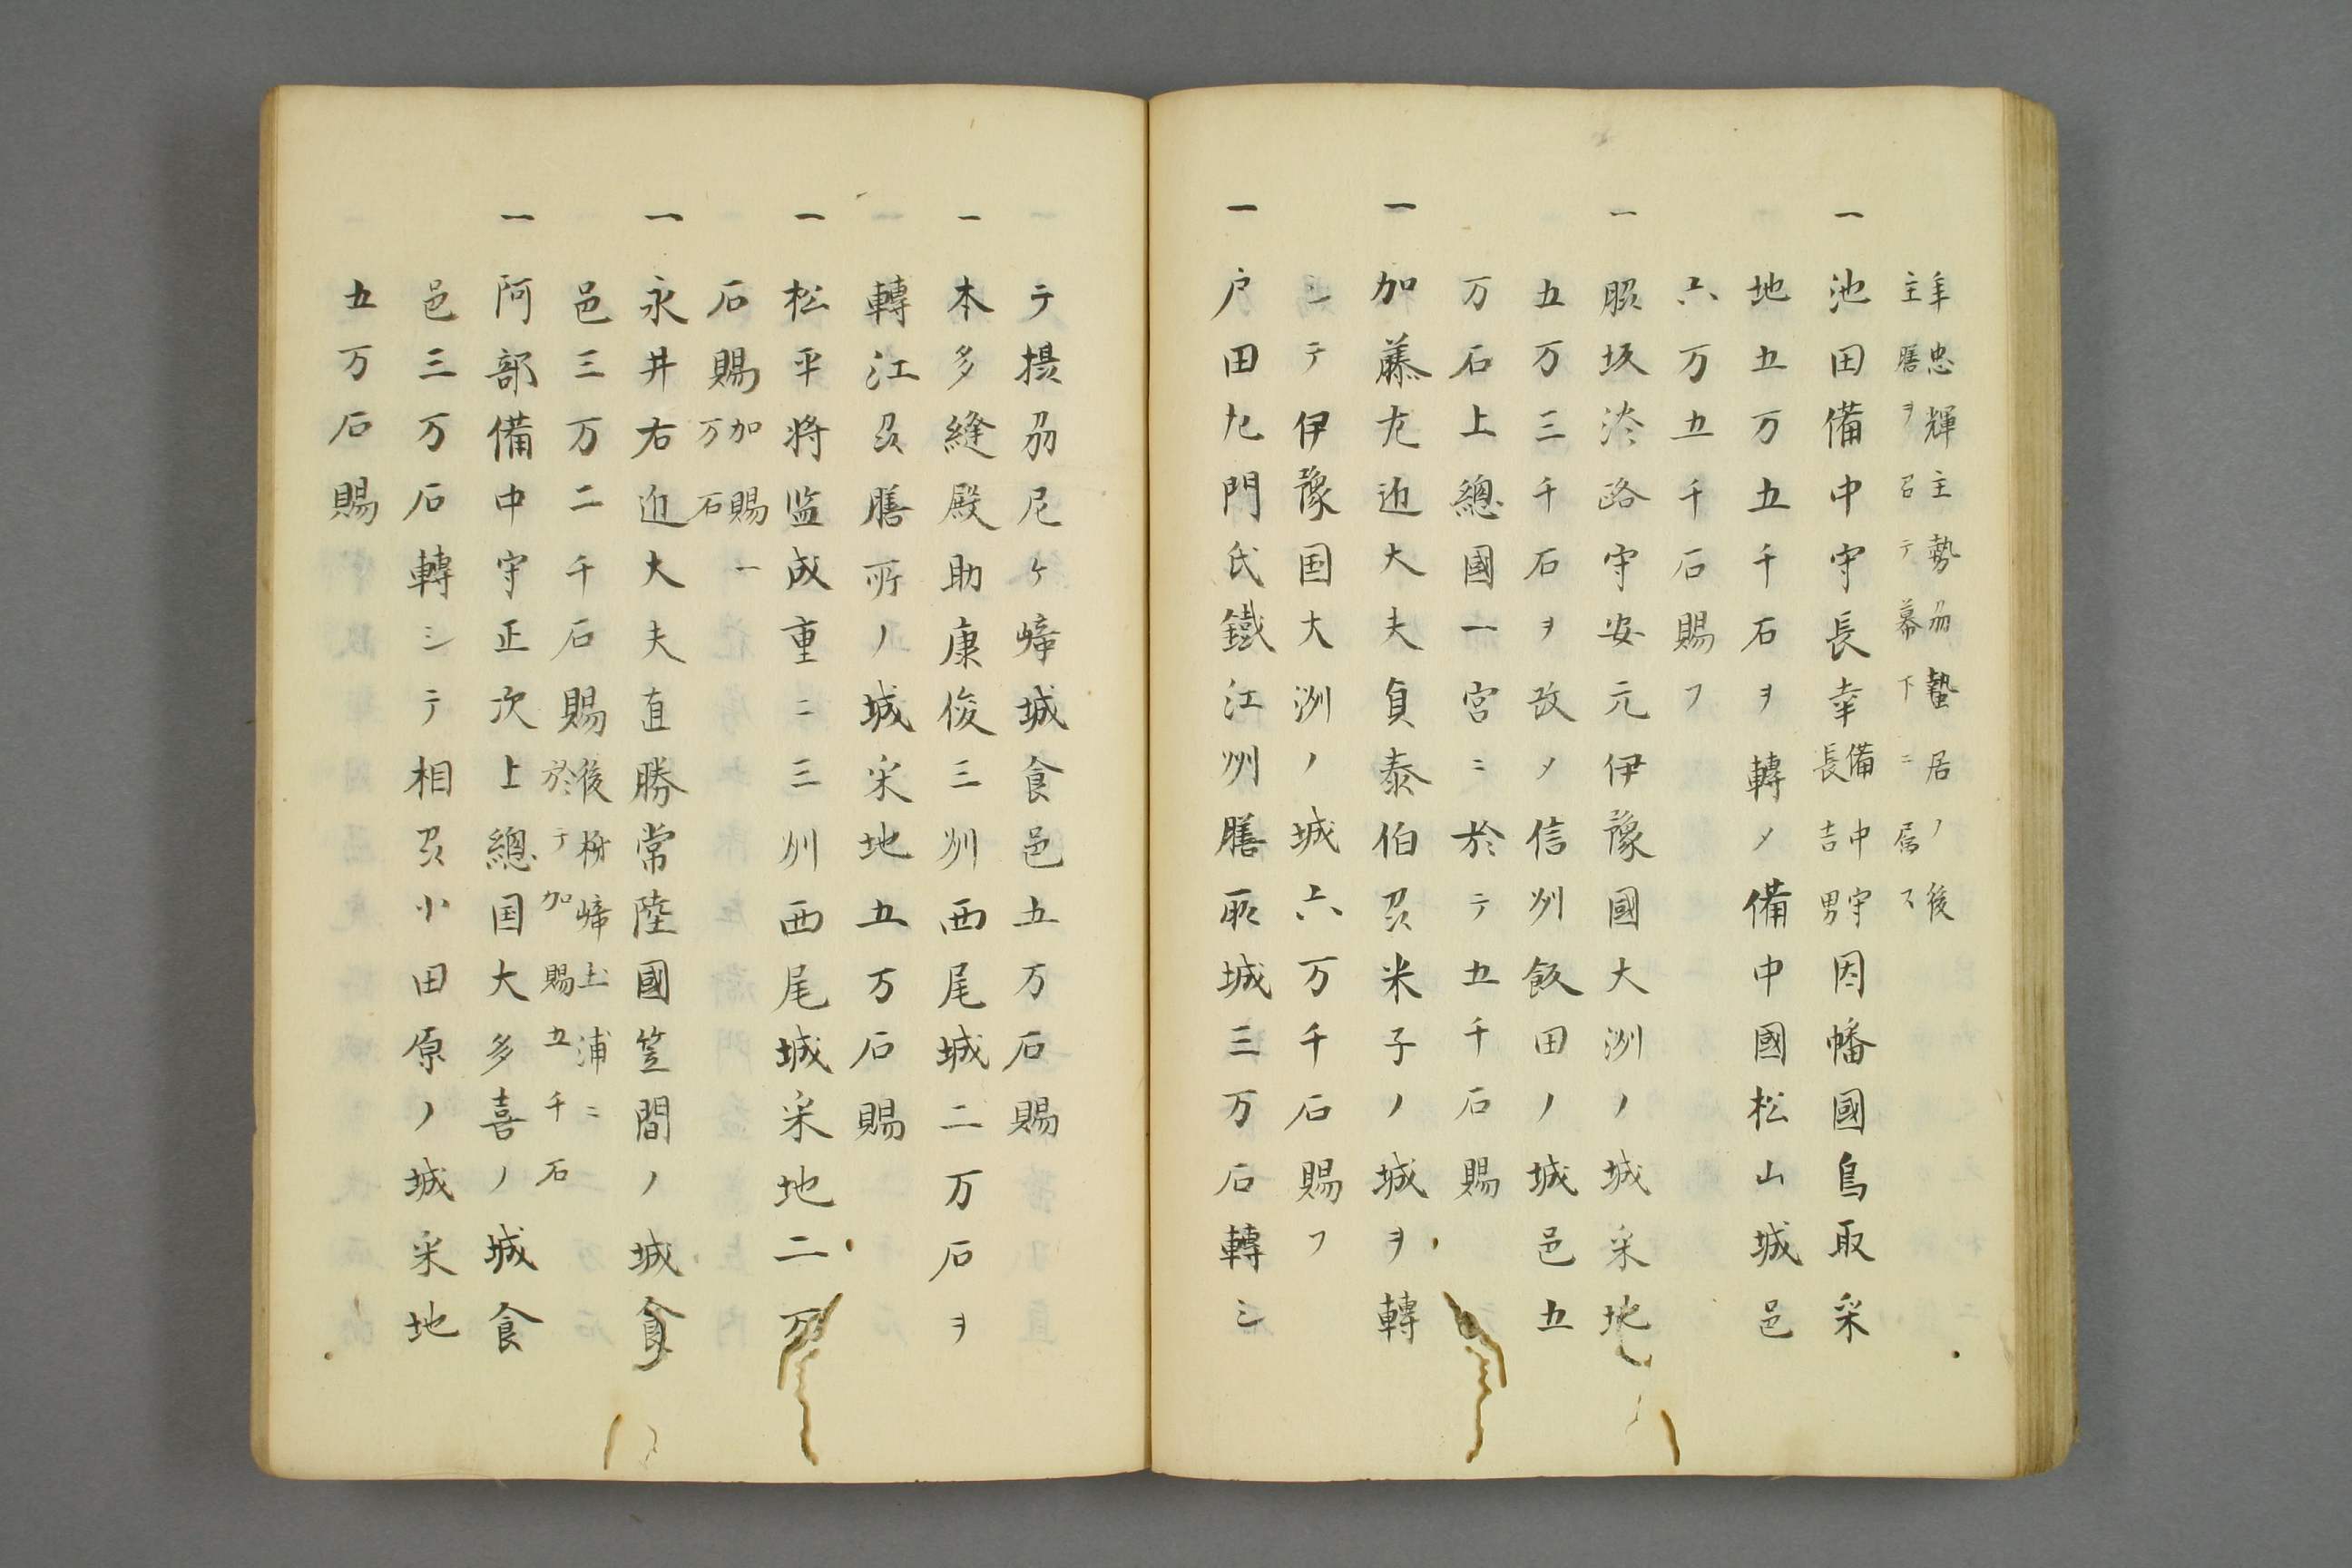 年忠輝主勢刕蟄居ノ後
主膳ヲ召テ幕下ニ属ス
一 池田備中守長幸備中守長吉男因幡國鳥取采
地五万五千石ヲ轉メ備中國松山城邑
六万五千石賜フ
一 脇坂淡路守安元伊豫國大洲ノ城采地
五万三千石ヲ改メ信州飯田ノ城邑五
万石上總國一宮ニ於テ五千石賜
一 加藤左近大夫貞泰伯州米子ノ城ヲ轉
シテ伊豫国大洲ノ城六万千石賜フ
一 戸田左門氏鐵江州膳所城三万石轉シ
テ摂刕尼ケ﨑城食邑五万石賜
一 本多縫殿助康俊三州西尾城二万石ヲ
轉江州膳所ノ城采地五万石賜
一 松平将監成重ニ三州西尾城采地二万
石賜加賜一万石
一 永井右近大夫直勝常陸國笠間ノ城食
邑三万二千石賜後於テ加賜五千石
一 阿部備中守正次上總国大多喜ノ城食
邑三万石轉シテ相州小田原ノ城采地
五万石賜